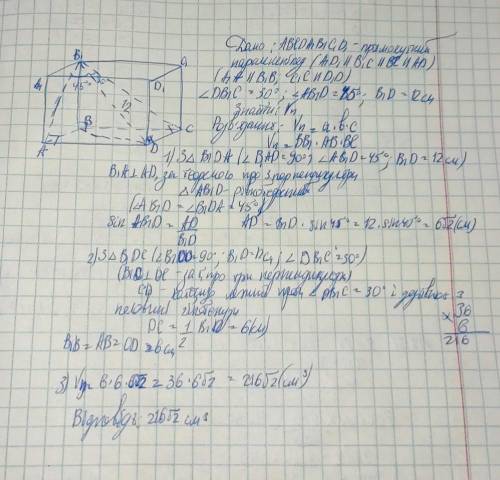 Дано: ABCDA₁B₁C₁D₁ - прямокутний
паралелепіпед (A₁D₁ ∥ B₁C₁ ∥ BC ∥ AD)
(A₁A ∥ B₁B, C₁C ∥ D₁D)
∠DB₁C = 30°; ∠AB₁D = 45°; B₁D = 12 см
Знайти: Vп
Розв'язання: Vп = a·b·c
Vп = BB₁·AB·BC
1) З △B₁DA (∠B₁AD=90°; ∠AB₁D=45°; B₁D=12 см)
B₁A⊥AD, за теоремою про 3 перпендикуляри
△AB₁D -
(∠AB₁D = ∠B₁DA = 45°)
sin AB₁D = AD/B₁D AD = B₁D · sin45° = 12 · sin40° = 6√2 (см)
2) З △B₁DC (∠B₁CD=90°; B₁D=12см; ∠DB₁C=30°)
(B₁C⊥DC - за т. про три перпендикуляри)
CD - катет, лежить проти ∠DB₁C = 30° і дорівнює
половині гіпотенузи
DC = 1 B₁D = 6(см)
B₁B = AB = CD = 6см²
3) Vп = 6·6·6√2 = 36·6√2 = 216√2 (см³)
Відповідь: 216√2 см³
3
36
× 6
216
B₁
C₁
A₁
D₁
45°
30°
12
B
C
A
D